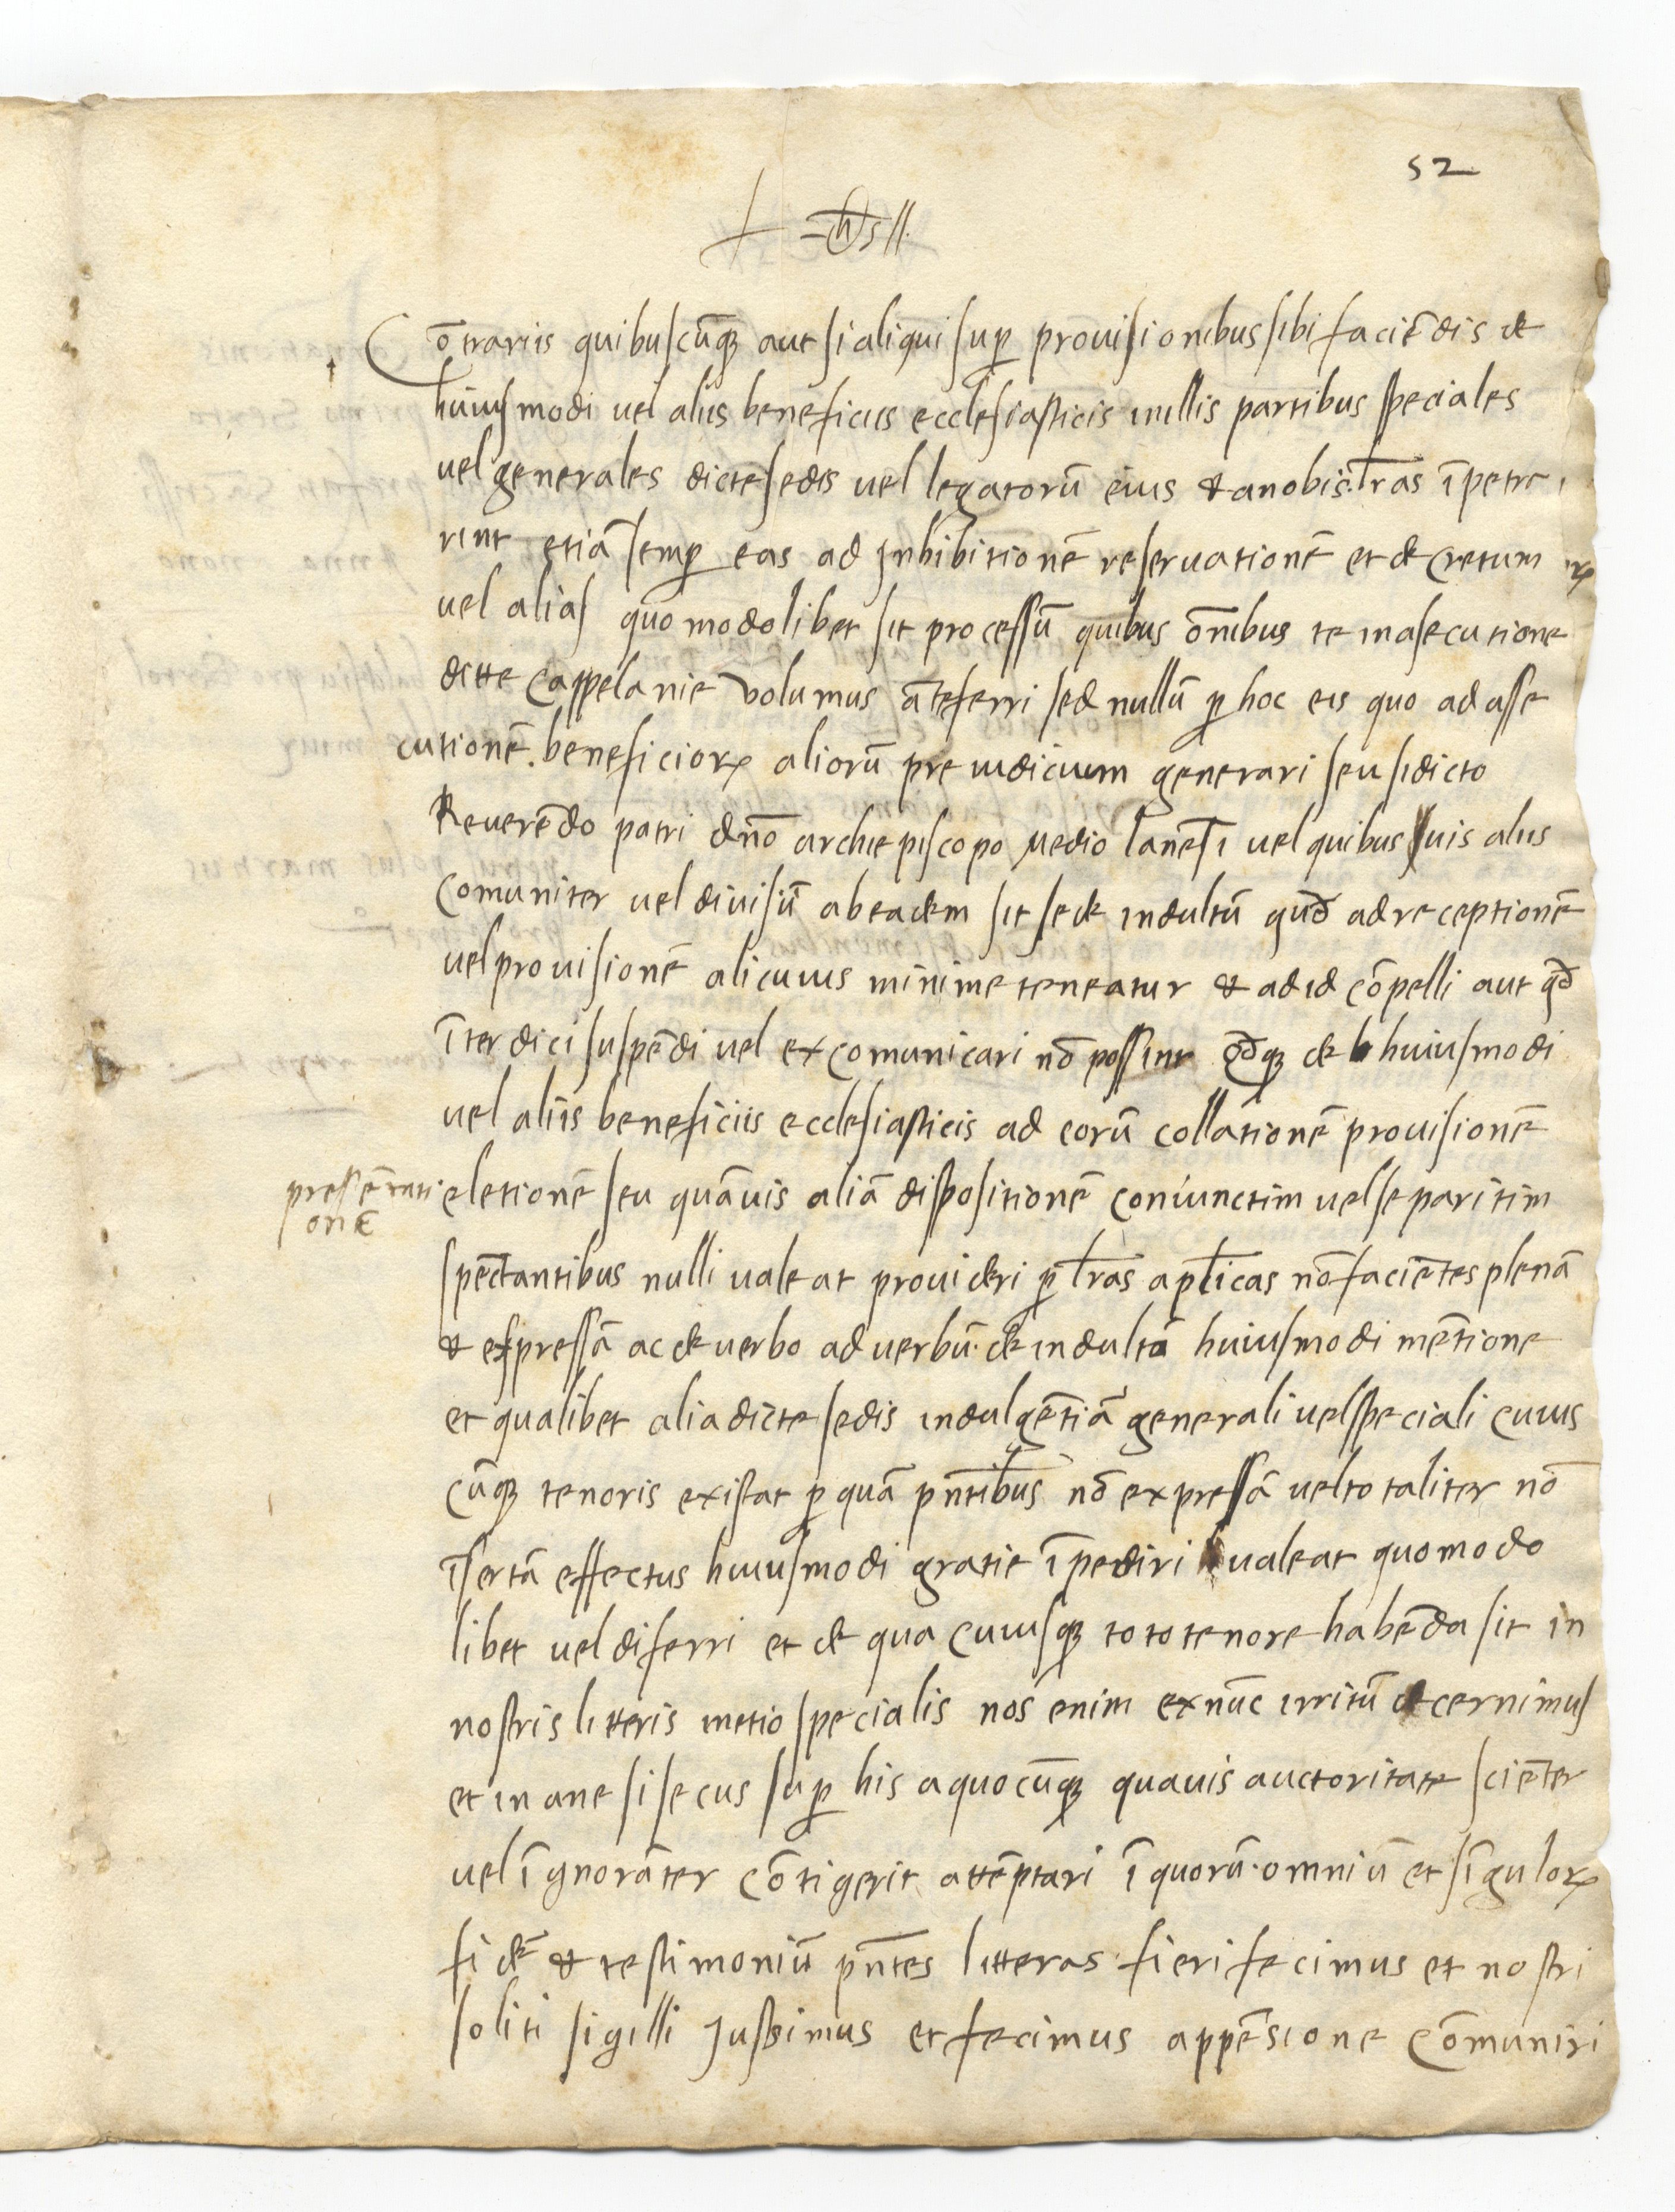 52
+ yhs
Cōtrariis quibuscūqꝫ aut si aliqui suꝑ prouisionibus sibi faciēdis de
huiusmodi uel aliis beneficiis ecclesiasticis in illis partibus speciales
uel generales dicte sedis uel legatorū eius & a nobis lr̄as īpetra
rint etiā si emꝑ eas ad Inhibitionē reseruationē et decretum
uel alias quomodolibet sit processū quibus ōnibus te in asecutione
ditte Cappelanie Volumus āteferri sed nullū ꝑ hoc eis quo ad asse
cutionē. beneficioꝝ aliorū preiudicium generari seu si dicto
Reuerēdo patri dn̄o archiepiscopo Mediolanēsi uel quibusuis aliis
Comuniter uel diuisī ab eadem sit sede indultū quod̄ ad receptionē
uel prouisionē alicuius minime teneatur & ad id cōpelli aut qd̄
īterdici suspēdi uel excomunicari nō possint qd̄qꝫ de huiusmodi
uel aliis beneficiis ecclesiasticis ad eorū collationē prouisionē
presētati
onē
eletionē seu quāuis aliā dispositionē coniunctim uel separitim
spectantibus nulli ualeat prouideri ꝑ lr̄as ap̄licas nō faciētes plenā
& expressā ac de uerbo ad uerbū. de indulta huiusmodi mētione
et qualibet alia dicte sedis indulgētiā generali uel speciali Cuius
cūqꝫ tenoris existat ꝑ quā pn̄tibus nō expressā uel totaliter nō
īsertā effectus huiusmodi gratie īpediri ualeat quomodo
libet uel diferri et de qua Cuiusqꝫ toto tenore habēda sit in
nostris litteris metio specialis nos enim ex nūc irritū decernimus
et inane si secus suꝑ his a quocūqꝫ quauis auctoritate sciēter
uel īgnorāter Cōtigerit attēptari ī quorū. omniū et sīguloꝝ
fidē & testimoniū pn̄tes litteras fieri fecimus et nostri
soliti sigilli Jussimus et fecimus appēsione Cōmuniri